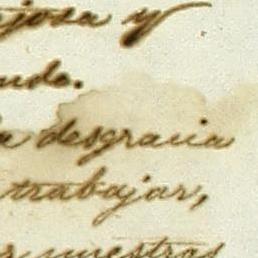 josa y
uda.
a desgracia
trabajar,
r nuestras